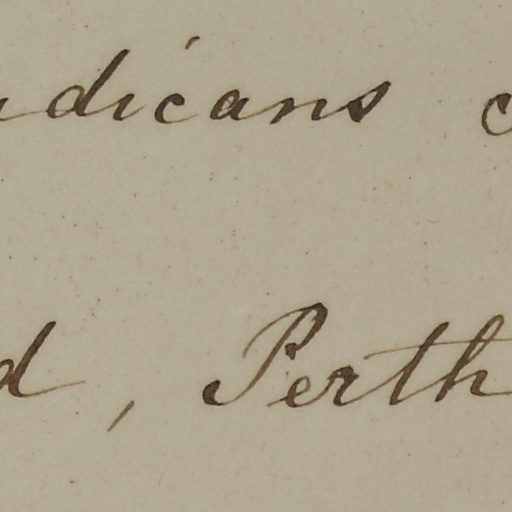 dicans
d, Perth